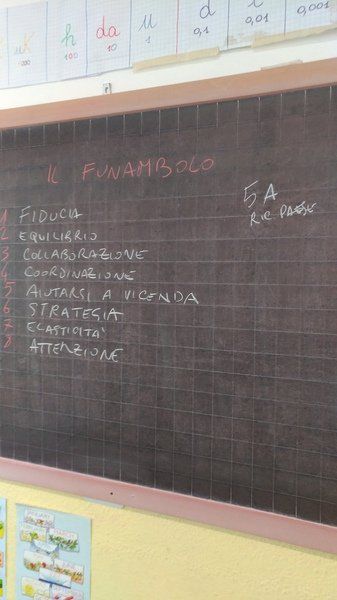 k h da u d c m
1000 100 10 1 0,1 0,01 0,001
IL FUNAMBOLO
5A
1 FIDUCIA
2 EQUILIBRIO
3 COLLABORAZIONE
4 COORDINAZIONE
5 AIUTARSI A VICENDA
6 STRATEGIA
7 ELASTICITA'
8 ATTENZIONE